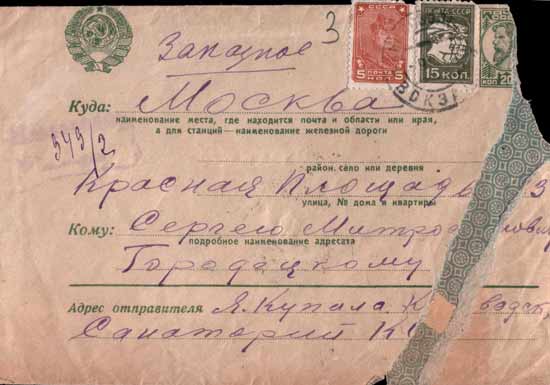 Заказное
3
ПОЧТА СССР
5 КОП. 5
15 КОП.
КОП 20
ВОКЗ
Куда: Москва
наименование места, где находится почта и области или края,
а для станций—наименование железной дороги
949/2
район, село или деревня
Красная Площадь 3
улица, № дома и квартиры
Кому: Сергею
подробное наименование адресата
Городецкому
Адрес отправителя Я. Купала
Санаторий